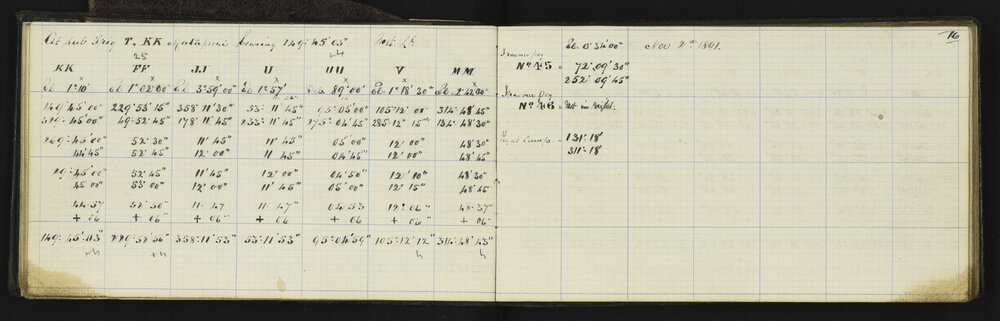 At Sub Trig T. KK Matapouri bearing 149° 45' 03"
25
KK FF JJ U UU V MM
El 1° 10' El 1° 02' 00" El 3° 59' 00" El 1° 57' 89° 00' El 1° 18' 30" El 2° 42' 00"
149° 45' 00" 229° 53' 15" 358° 11' 30" 53° 11' 45" 95° 05' 00" 105° 12' 00" 314° 48' 45"
329° 45' 00" 49° 52' 45" 178° 11' 45" 233° 11' 45" 275° 04' 45" 285° 12' 15" 134° 48' 30"
149° 45' 00" 52' 30" 11' 45" 11' 45" 05' 00" 12' 00" 48' 30"
44' 45" 52' 45" 12' 00" 11' 45" 04' 45" 12' 00" 48' 45"
45' 00" 52' 45" 11' 45" 12' 00" 04' 50" 12' 10" 48' 30"
45' 00" 53' 00" 12' 00" 11' 45" 05' 00" 12' 15" 48' 45"
44' 57 52' 50" 11' 47 11' 47" 04' 53 12' 06" 48' 37"
+ 06 + 06" + 06" + 06 + 06 + 06" + 06
149° 45' 03" 229° 52' 56" 358° 11' 53" 53° 11' 53" 95° 04' 59" 105° 12' 12" 314° 48' 43"
16
El 0° 34' 00" Nov 2nd 1891.
No 45 = 72° 09' 30"
252° 09' 45"
No 46 = Not in sight.
131° 18'
311° 18'